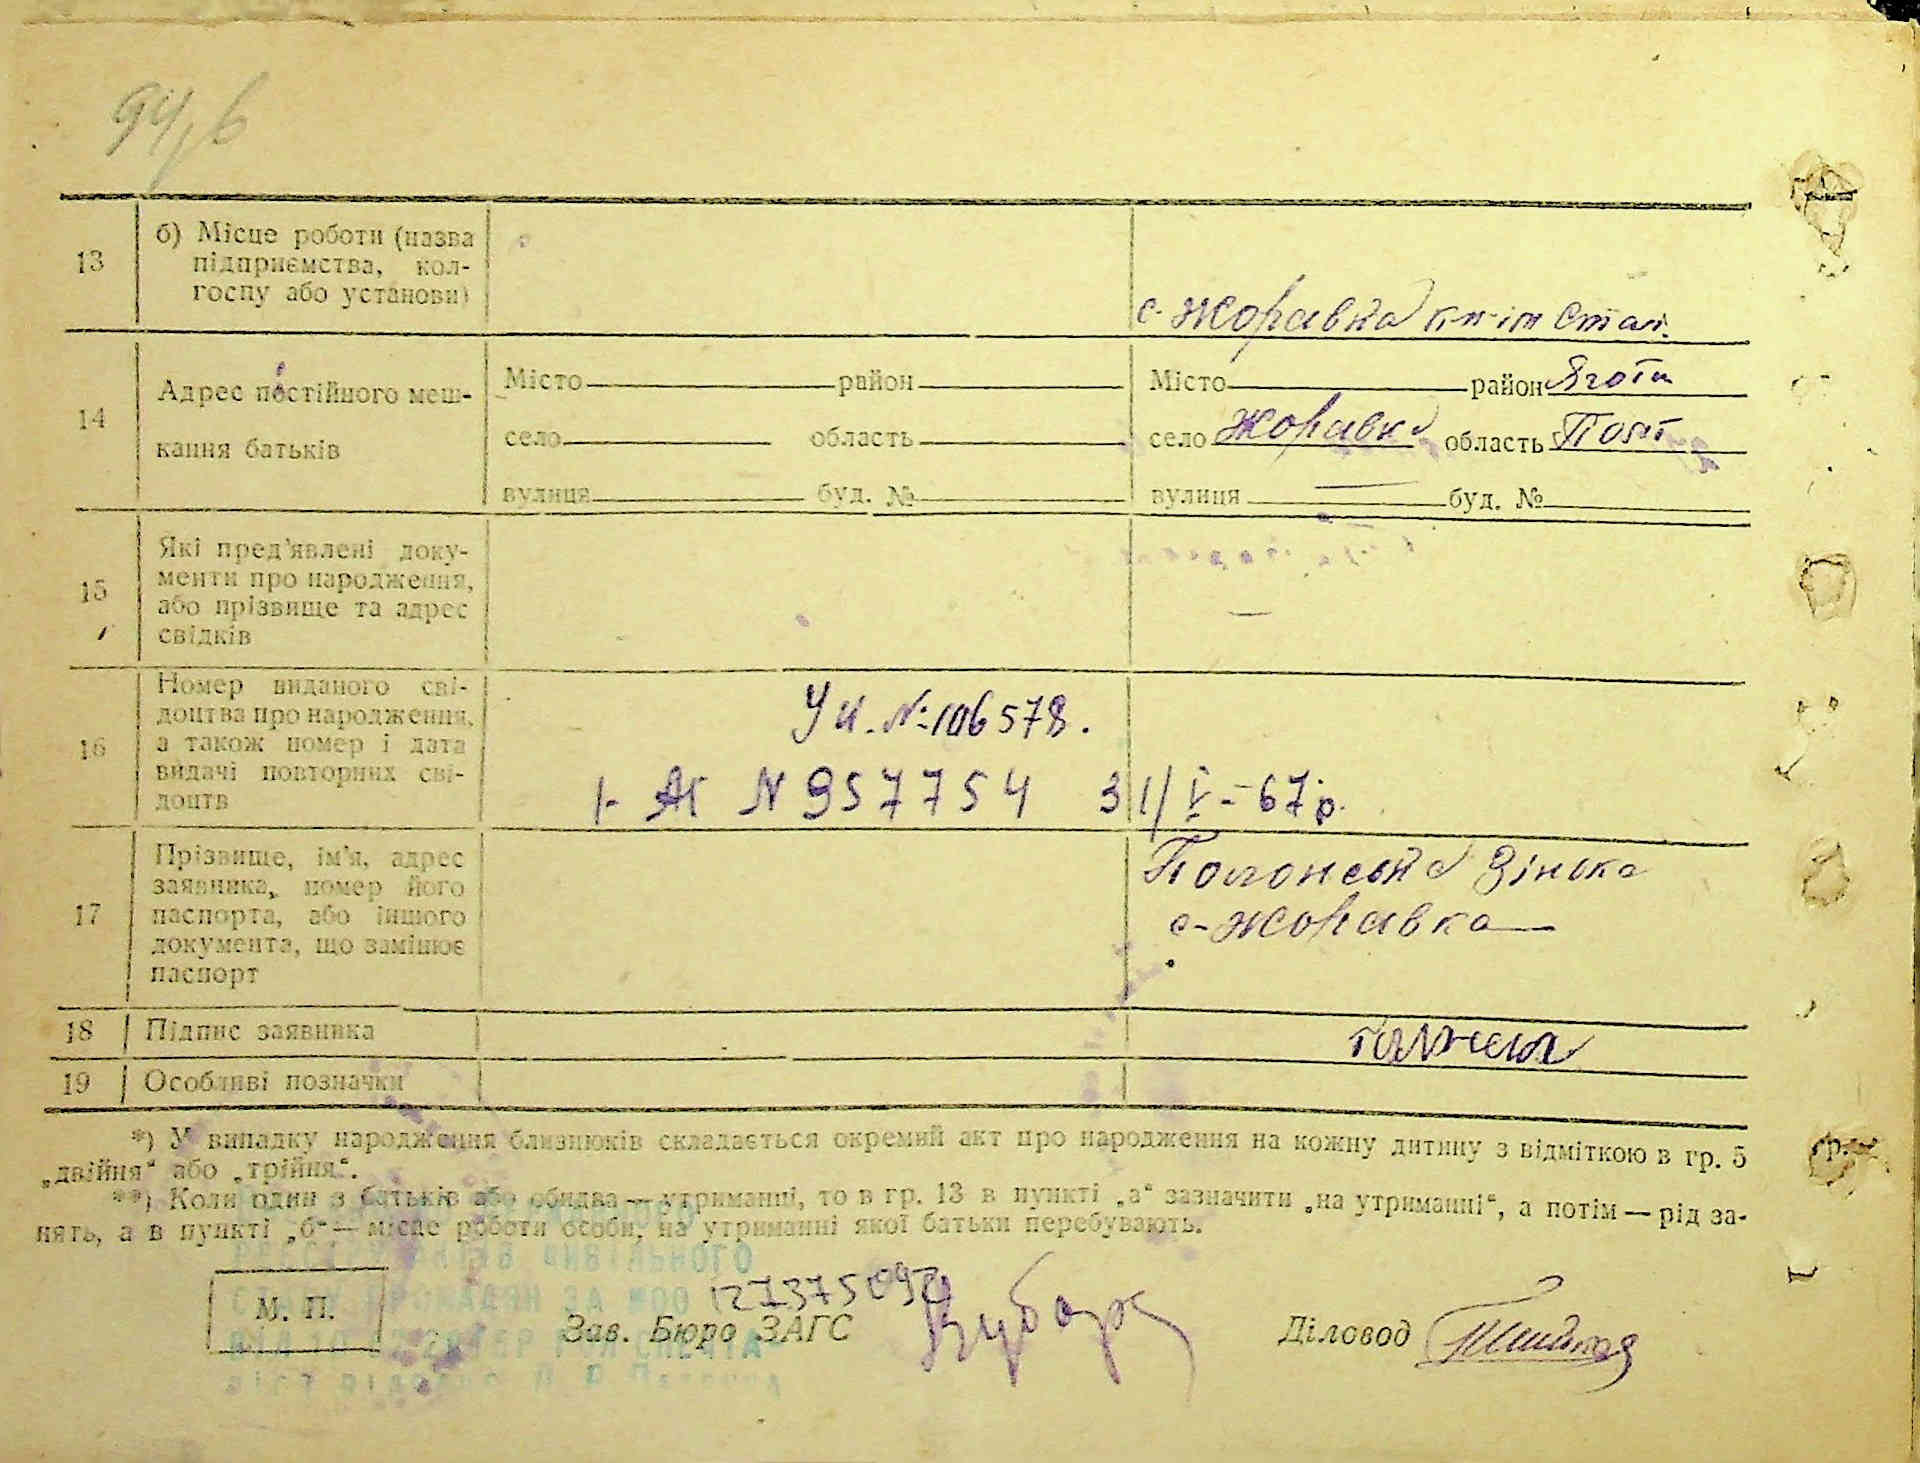 94,6
13 б) Місце роботи (назва
підприємства, кол-
госпу або установи)
с. Жоравка к-п ім Стал.
14 Адрес постійного меш-
кання батьків
Місто район Місто район Яготи
село область село Жоравка область Полт
вулиця буд. № вулиця — буд. №
15 Які пред'явлені доку-
менти про народження,
або прізвище та адрес
свідків
—
16 Номер виданого сві-
доцтва про народження,
а також номер і дата
видачі повторних сві-
доцтв
Уи. №106578.
1- АГ N 957754 31/V-67р.
17 Прізвище, ім'я, адрес
заявника, номер його
паспорта, або іншого
документа, що замінює
паспорт
Полонська Зінька
с-Жоравка
18 Підпис заявника
19 Особливі позначки
*) У випадку народження близнюків складається окремий акт про народження на кожну дитину з відміткою в гр. 5
„двійня“ або „трійня“.
**) Коли один з батьків або обидва — утриманці, то в гр. 13 в пункті „а“ зазначити „на утриманні“, а потім — рід за-
нять, а в пункті „б“ — місце роботи особи, на утриманні якої батьки перебувають.
М. П.
Зав. Бюро ЗАГС
Діловод